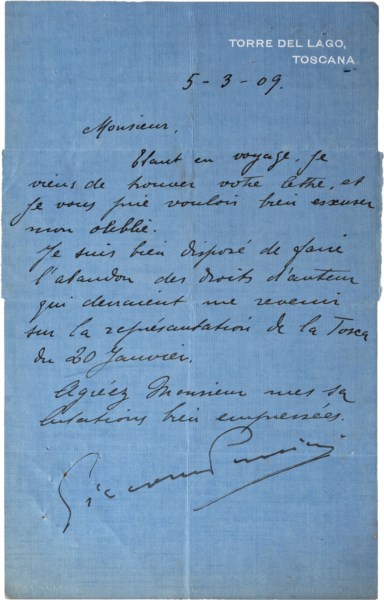 TORRE DEL LAGO,
TOSCANA
5-3-09.
Monsieur,
Etant en voyage, je
viens de trouver votre lettre, et
je vous prie vouloir bien excuser
mon oubli.
Je suis bien disposé de faire
l'abandon des droits d'auteur
qui devraient me revenir
sur la représentation de la Tosca
du 20 Janvier.
Agréez Monsieur mes sa
lutations bien empressées.
Giacomo Puccini